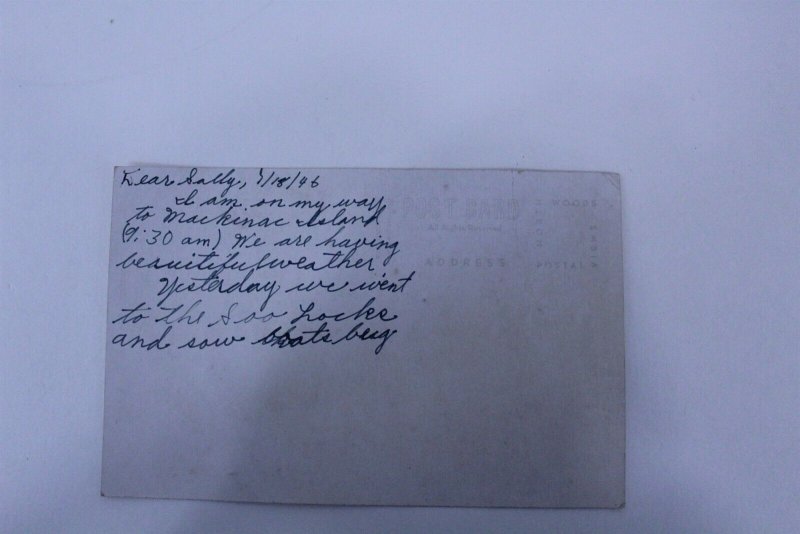 Dear Sally, 7/18/46
I am on my way
to Mackinac Island
(9:30 am) We are having
beauitiful weather
Yesterday we went
to the Soo Locks
and sow boats beig
POST CARD
ADDRESS